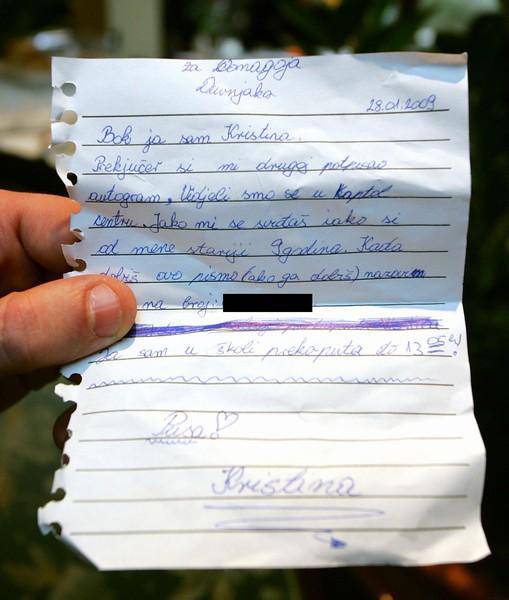 za Domagoja
Duvnjaka
28.01.2009
Bok ja sam Kristina.
Prekjučer si mi drugoj potpisao
autogram, Vidjeli smo se u Kaptol
centru. Jako mi se sviđaš iako si
od mene stariji 9godina. Kada
dobiš ovo pismo (ako ga dobiš) nazovi
na broj:
Ja sam u školi prekoputa do 13
Pusa!
Kristina